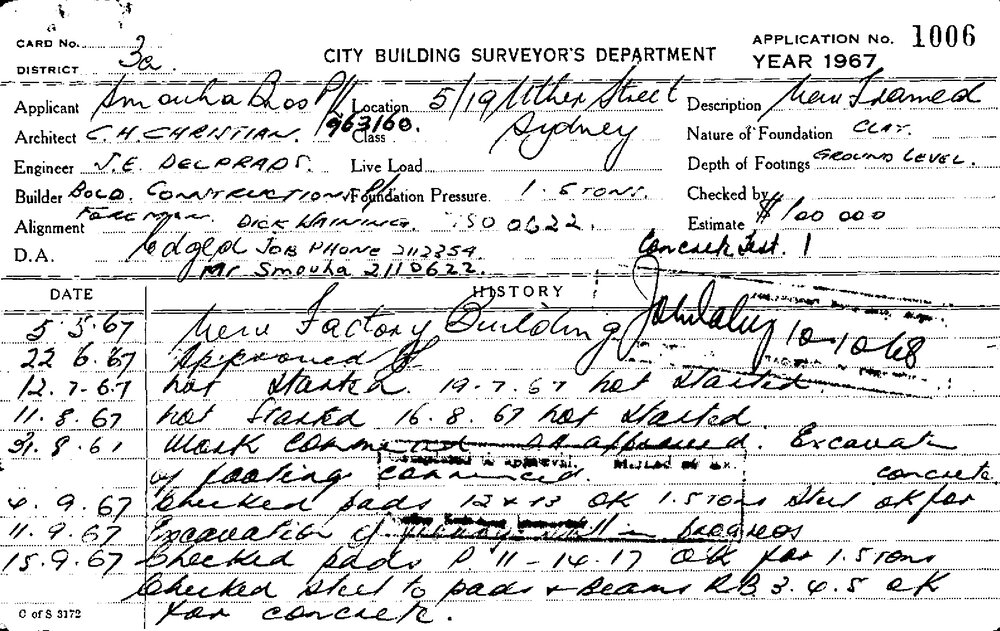 CARD No. 3a
DISTRICT
CITY BUILDING SURVEYOR'S DEPARTMENT
APPLICATION No. 1006
YEAR 1967
Applicant Smouha Bros P/L Location 5/19 Ulther Street Description New Framed
Architect C.H. CHRISTIAN. 963160. Class Sydney Nature of Foundation CLAY.
Engineer J.E. DELPRADS. Live Load Depth of Footings GROUND LEVEL.
Builder BOLD. CONSTRUCTIONS P/L Foundation Pressure 1.5 TONS. Checked by
Alignment FOREMAN. DICK WAINING. ISO 0622. Estimate $100 000
D.A. Edged JOB PHONE 2112354 Concrete Test. 1
Mr Smouha 2110622.
DATE HISTORY
5.5.67 New Factory Building
10.10.68
22 6.67 Approved
12.7.67 not started. 19.7.67 not started.
11.8.67 not started 16.8.67 not started
31.8.61 Work commenced as approved. Excavatn
of footings commenced. concrete
4.9.67 Checked pads 12 & 13 OK 1.5 tons steel ok for
11.9.67 Excavation of still in progress
15.9.67 Checked pads P 11 - 14.17 OK for 1.5 tons
Checked steel to pads & Beams R.B. 3.4.5 OK
for concrete.
C of S 3172